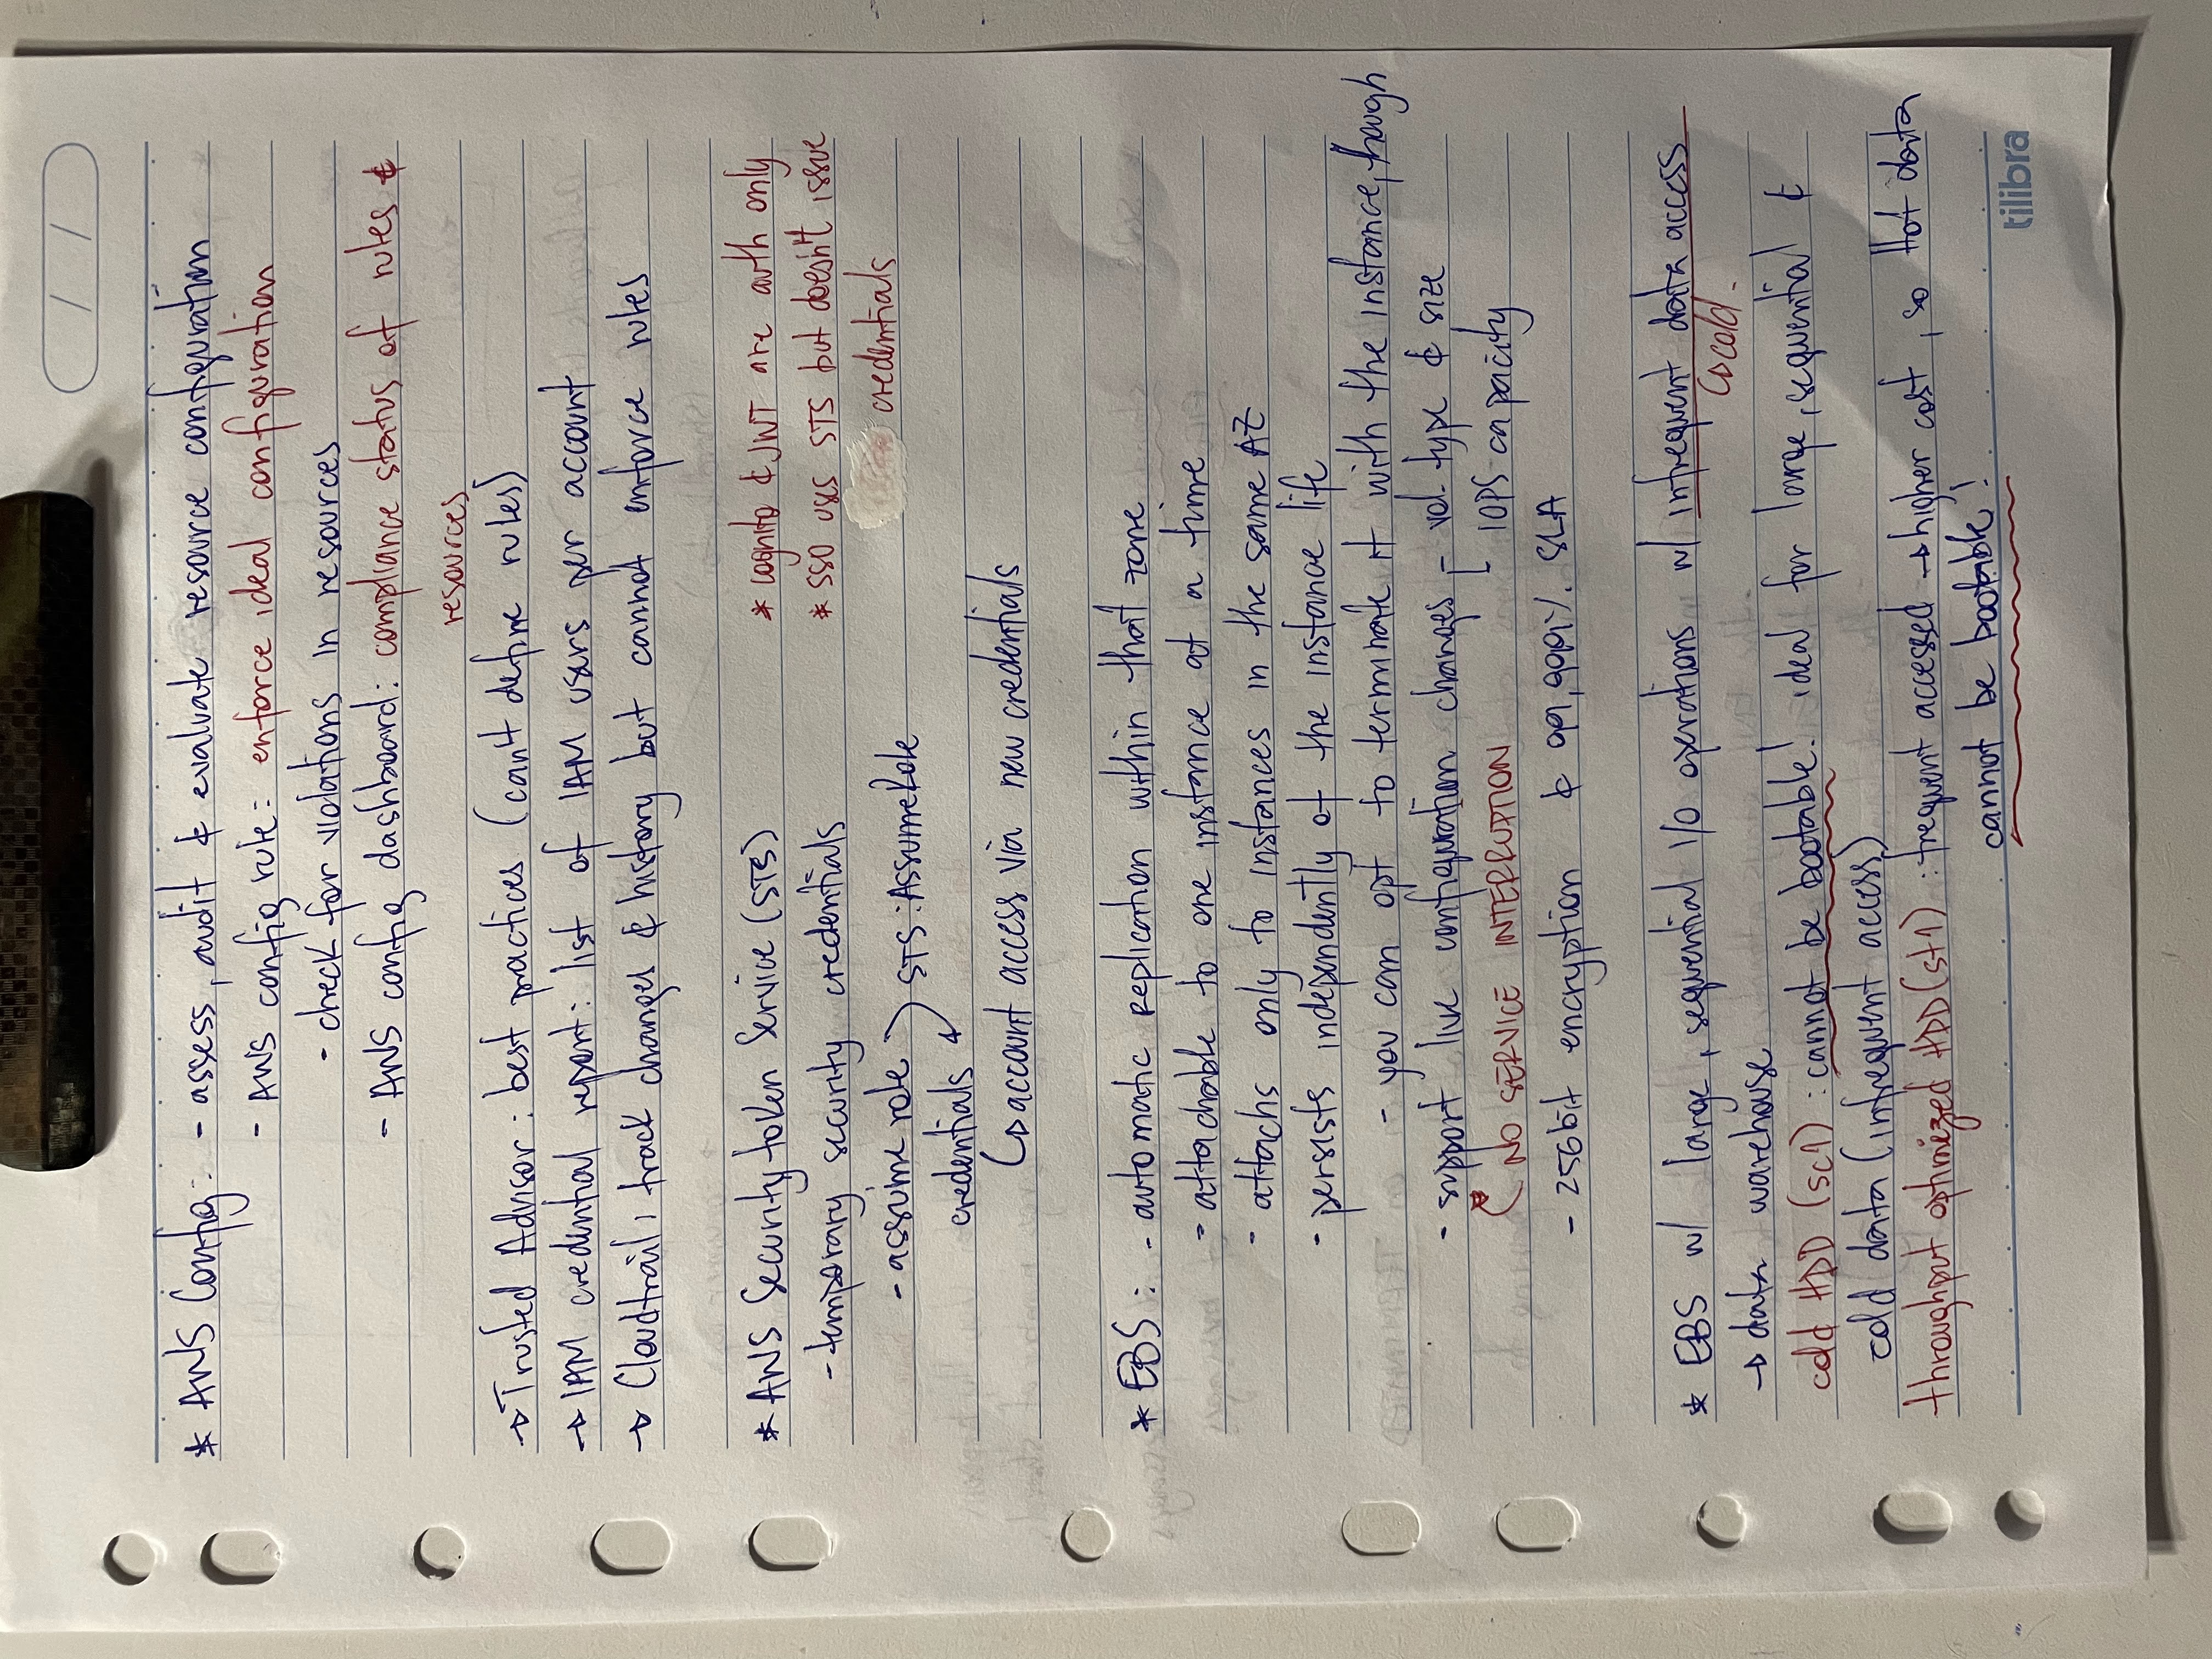 * AWS Config: - assess, audit & evaluate resource configuration
- AWS config rule: enforce ideal configuration
- check for violations in resources
- AWS config dashboard: compliance status of rules &
resources
→ Trusted Advisor: best practices (can't define rules)
→ IAM credential report: list of IAM users per account
→ Cloudtrail: track changes & history but cannot enforce rules
* AWS Security token Service (STS)
- temporary security credentials
- assume role
STS:AssumeRole
credentials
↳ account access via new credentials
* cognito & JWT are auth only
* SSO uses STS but doesn't issue
credentials
* EBS: - automatic replication within that zone
- attachable to one instance at a time
- attachs only to instances in the same AZ
- persists independently of the instance life
- you can opt to terminate it with the instance, though
- support live configuration changes - vol. type & size
NO SERVICE INTERRUPTION - IOPS capacity
- 256bit encryption & 99,999% SLA
* EBS w/ large, sequential I/O operations w/ infrequent data access
↳ cold.
→ data warehouse
cold HDD (sc1): cannot be bootable! ideal for large, sequential &
cold data (infrequent access)
throughput optimized HDD (st1): frequent accessed → higher cost, so Hot data
cannot be bootable!
tilibra